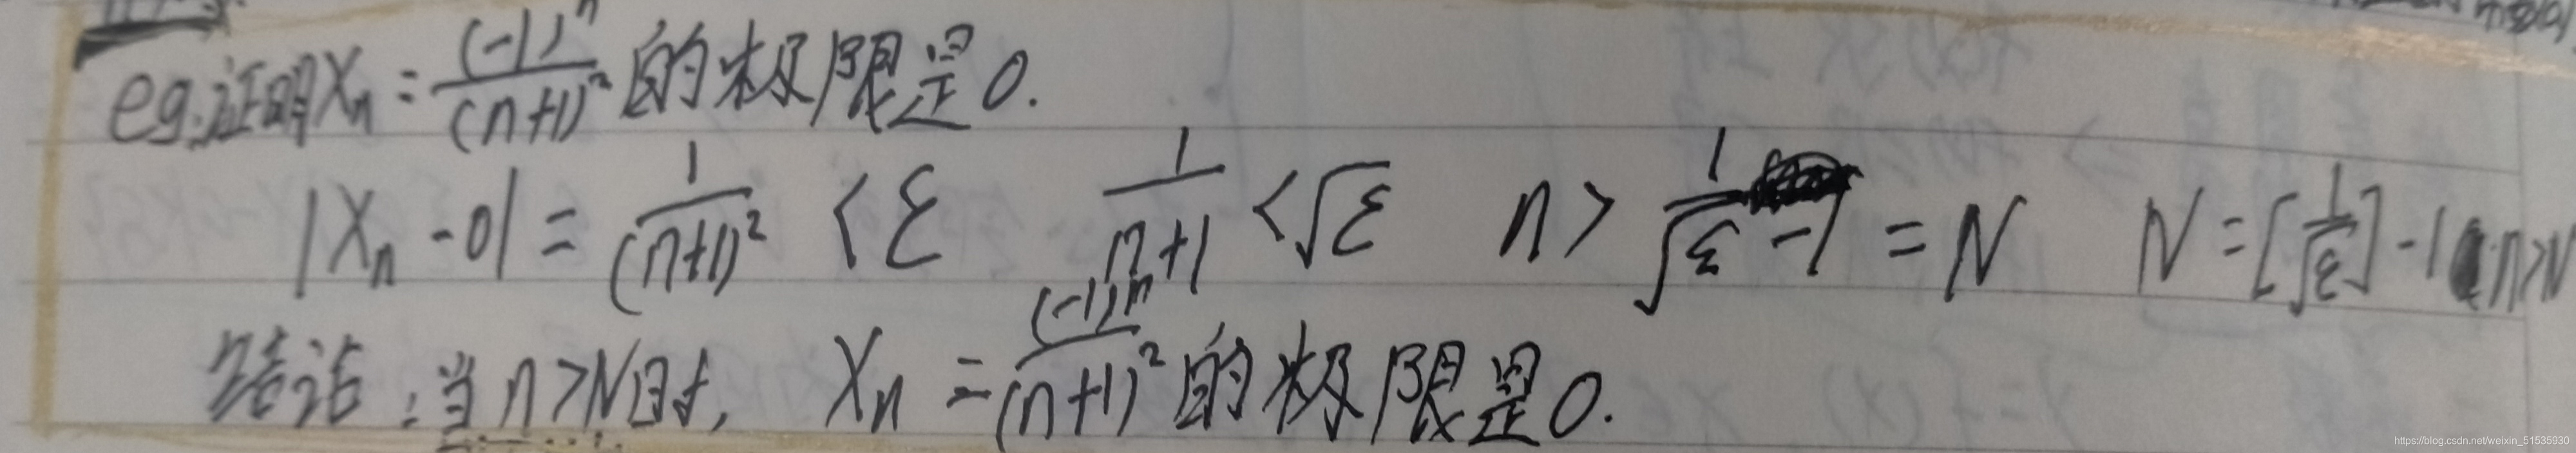 eg.证明Xn = (-1)^n/(n+1)^2 的极限是0.
|Xn - 0| = 1/(n+1)^2 < ε 1/(n+1) < √ε n > 1/√ε - 1 = N N = [1/√ε] - 1 n>N
结论:当n>N时, Xn = (-1)^n/(n+1)^2 的极限是0.
https://blog.csdn.net/weixin_51535930